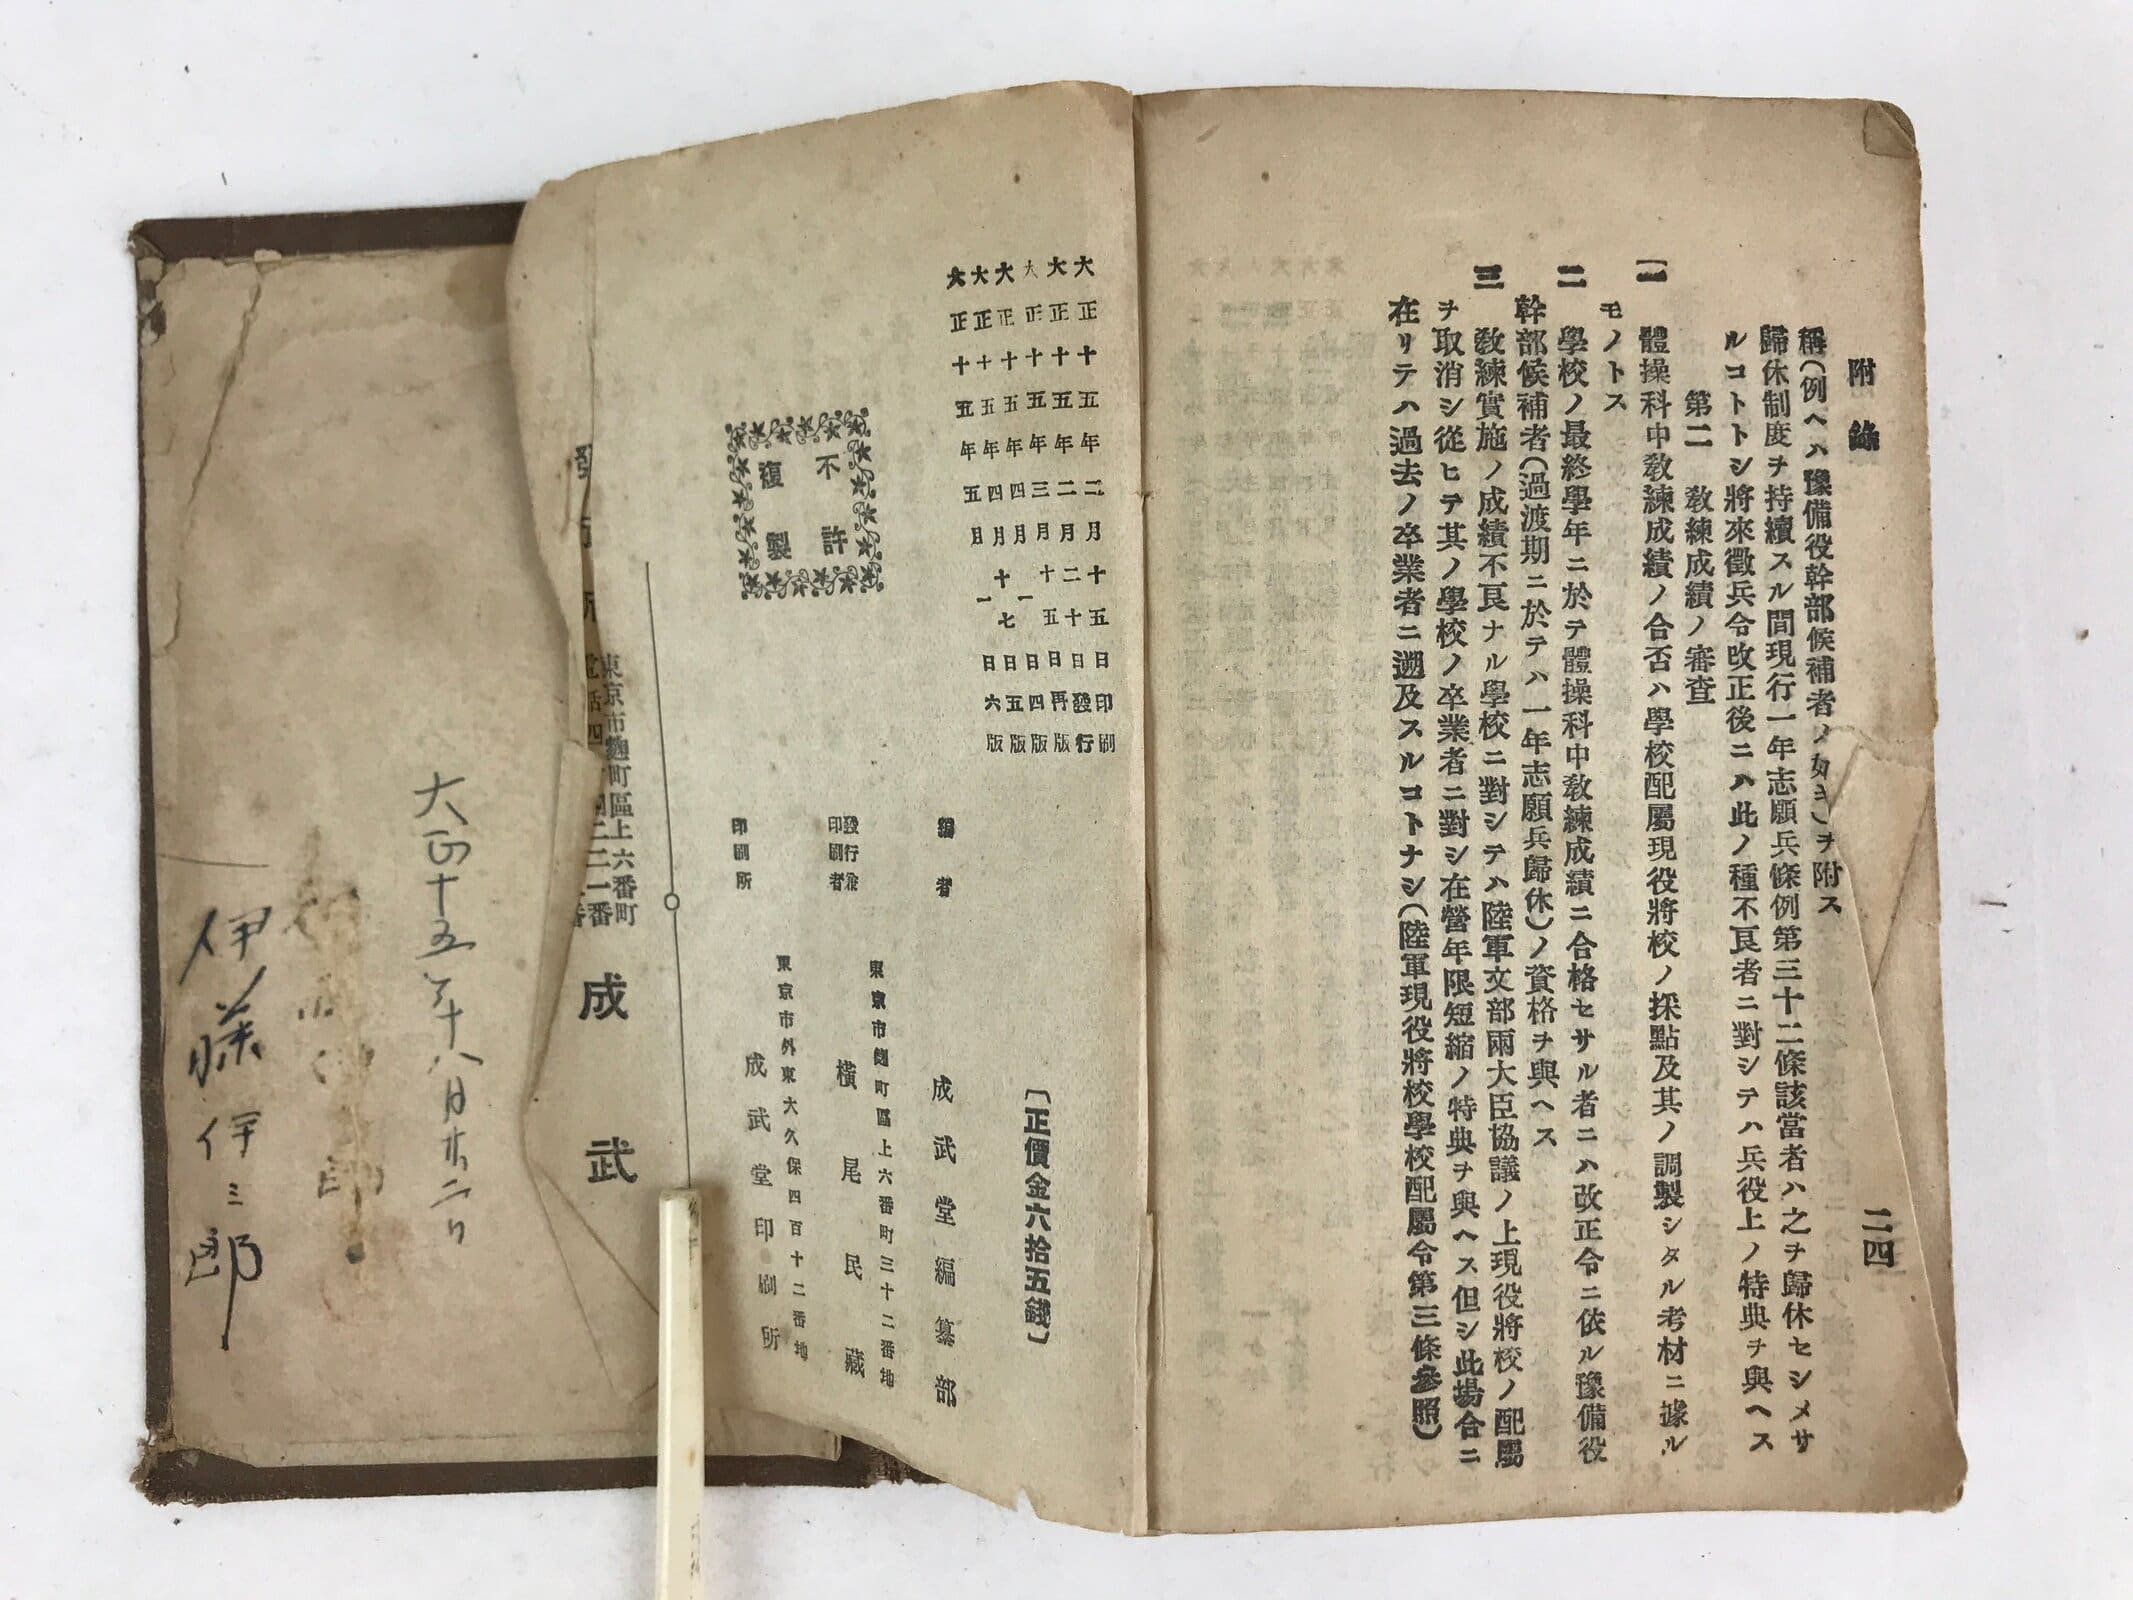 附錄
二四
稱(例ヘハ豫備役幹部候補者ノ如キ)ヲ附ス
歸休制度ヲ持續スル間現行一年志願兵條例第三十二條該當者ハ之ヲ歸休セシメサ
ルコトトシ將來徵兵令改正後ニハ此ノ種不良者ニ對シテハ兵役上ノ特典ヲ與ヘス
第二 敎練成績ノ審查
一 體操科中敎練成績ノ合否ハ學校配屬現役將校ノ採點及其ノ調製シタル考材ニ據ル
モノトス
二 學校ノ最終學年ニ於テ體操科中敎練成績ニ合格セサル者ニハ改正令ニ依ル豫備役
幹部候補者(過渡期ニ於テハ一年志願兵歸休)ノ資格ヲ與ヘス
三 敎練實施ノ成績不良ナル學校ニ對シテハ陸軍文部兩大臣協議ノ上現役將校ノ配屬
ヲ取消シ從ヒテ其ノ學校ノ卒業者ニ對シ在營年限短縮ノ特典ヲ與ヘス但シ此場合ニ
在リテハ過去ノ卒業者ニ遡及スルコトナシ(陸軍現役將校學校配屬令第三條參照)
大正十五年二月十五日印刷
大正十五年二月二十日發行
大正十五年二月二十五日再版
大正十五年三月十一日四版
大正十五年四月 日五版
大正十五年四月十七日
大正十五年五月一日六版
不許
複製
〔正價金六拾五錢〕
編者 成武堂編纂部
發行兼
印刷者
東京市麴町區上六番町三十二番地
橫尾民藏
印刷所
東京市外東大久保四百十二番地
成武堂印刷所
東京市麴町區上六番町
成武
大正十五年十八月廿二日
伊藤伊三郎